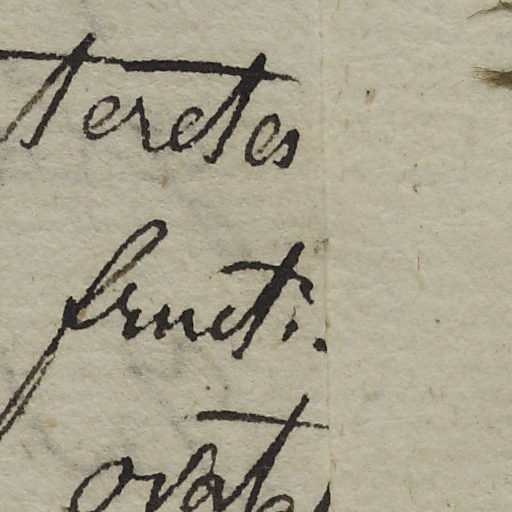 teretes
fruct:.
ovatas